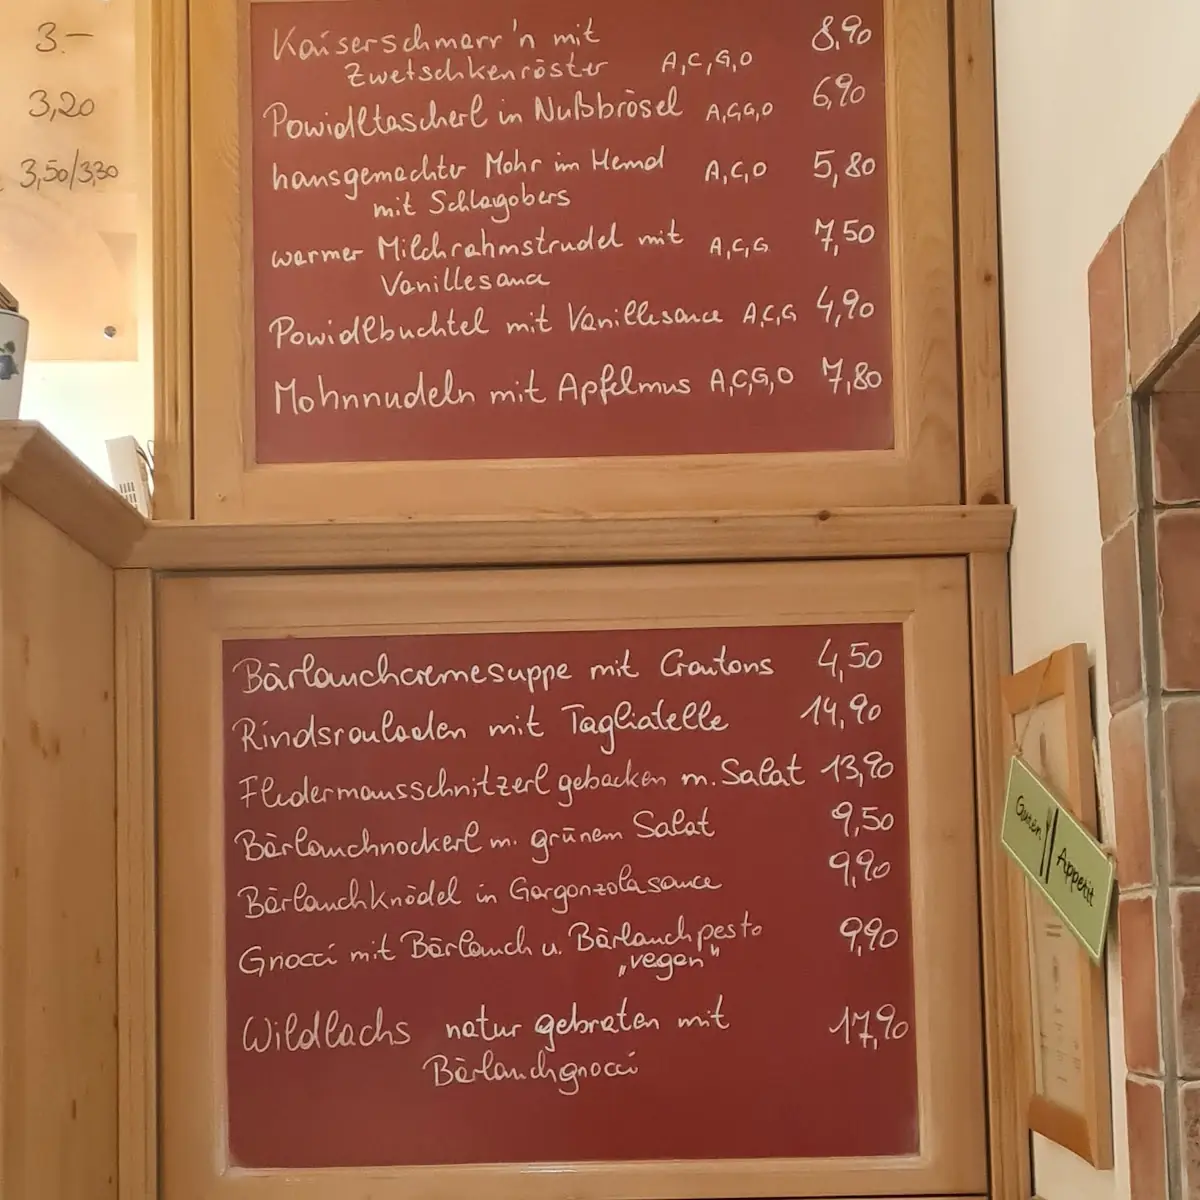 3.-
3,20
3,50/3,30
Kaiserschmarr'n mit 8,90
Zwetschkenröster A,C,G,O
Powidltascherl in Nußbrösel A,G,O 6,90
hausgemachter Mohr im Hemd A,C,O 5,80
mit Schlagobers
warmer Milchrahmstrudel mit A,C,G 7,50
Vanillesauce
Powidlbuchtel mit Vanillesauce A,C,G 4,90
Mohnnudeln mit Apfelmus A,C,G,O 7,80
Bärlauchcremesuppe mit Croutons 4,50
Rindsrouladen mit Tagliatelle 14,90
Fledermausschnitzerl gebacken m. Salat 13,90
Bärlauchnockerl m. grünem Salat 9,50
Bärlauchknödel in Gorgonzolasauce 9,90
Gnocci mit Bärlauch u. Bärlauchpesto 9,90
„vegan"
Wildlachs natur gebraten mit 17,90
Bärlauchgnocci
Guten Appetit